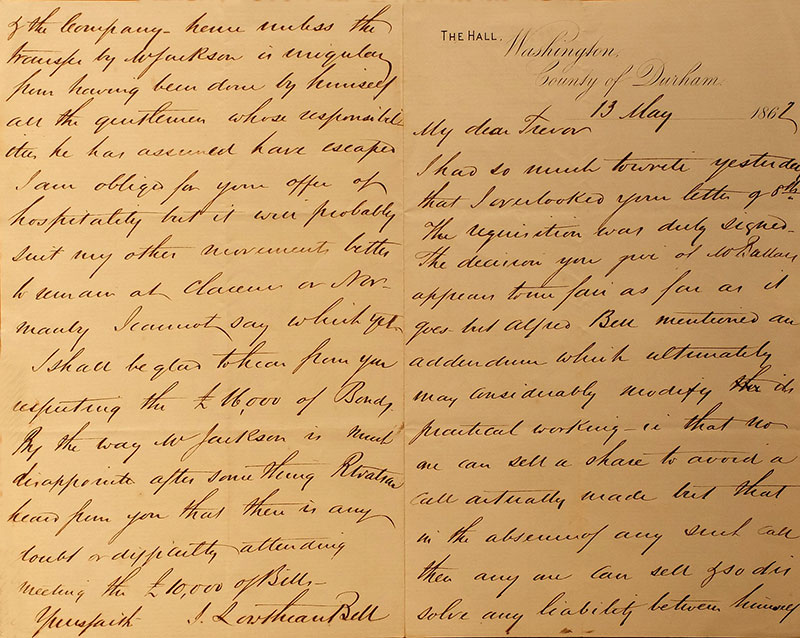 THE HALL,
Washington,
County of Durham.
13 May 1862
My dear Trevor
I had so much to write yesterday
that I overlooked your letter of 8th.
The requisition was duly signed -
The decision you give of Mr
appears to me fair as far as it
goes - but Alfred Bell mentioned an
addendum which ultimately
may considerably modify its
practical working - ie that no
one can sell a share to avoid a
call actually made but that
in the absence of any such call
then any one can sell & so dis
solve any liability between himself
& the Company - hence unless the
transfer by Mr Jackson is irregular
from having been done by himself
all the gentlemen whose responsibil
ities he has assumed have escaped
I am obliged for your offer of
hospitality but it will probably
suit my other movements better
to remain at Clarence or Nor-
manby I cannot say which yet -
I shall be glad to hear from you
respecting the £16,000 of Bonds
By the way Mr Jackson is much
disappointed after something
heard from you that there is any
doubt or difficulty attending
meeting the £10,000 of Bills -
Yours faith I. Lowthian Bell